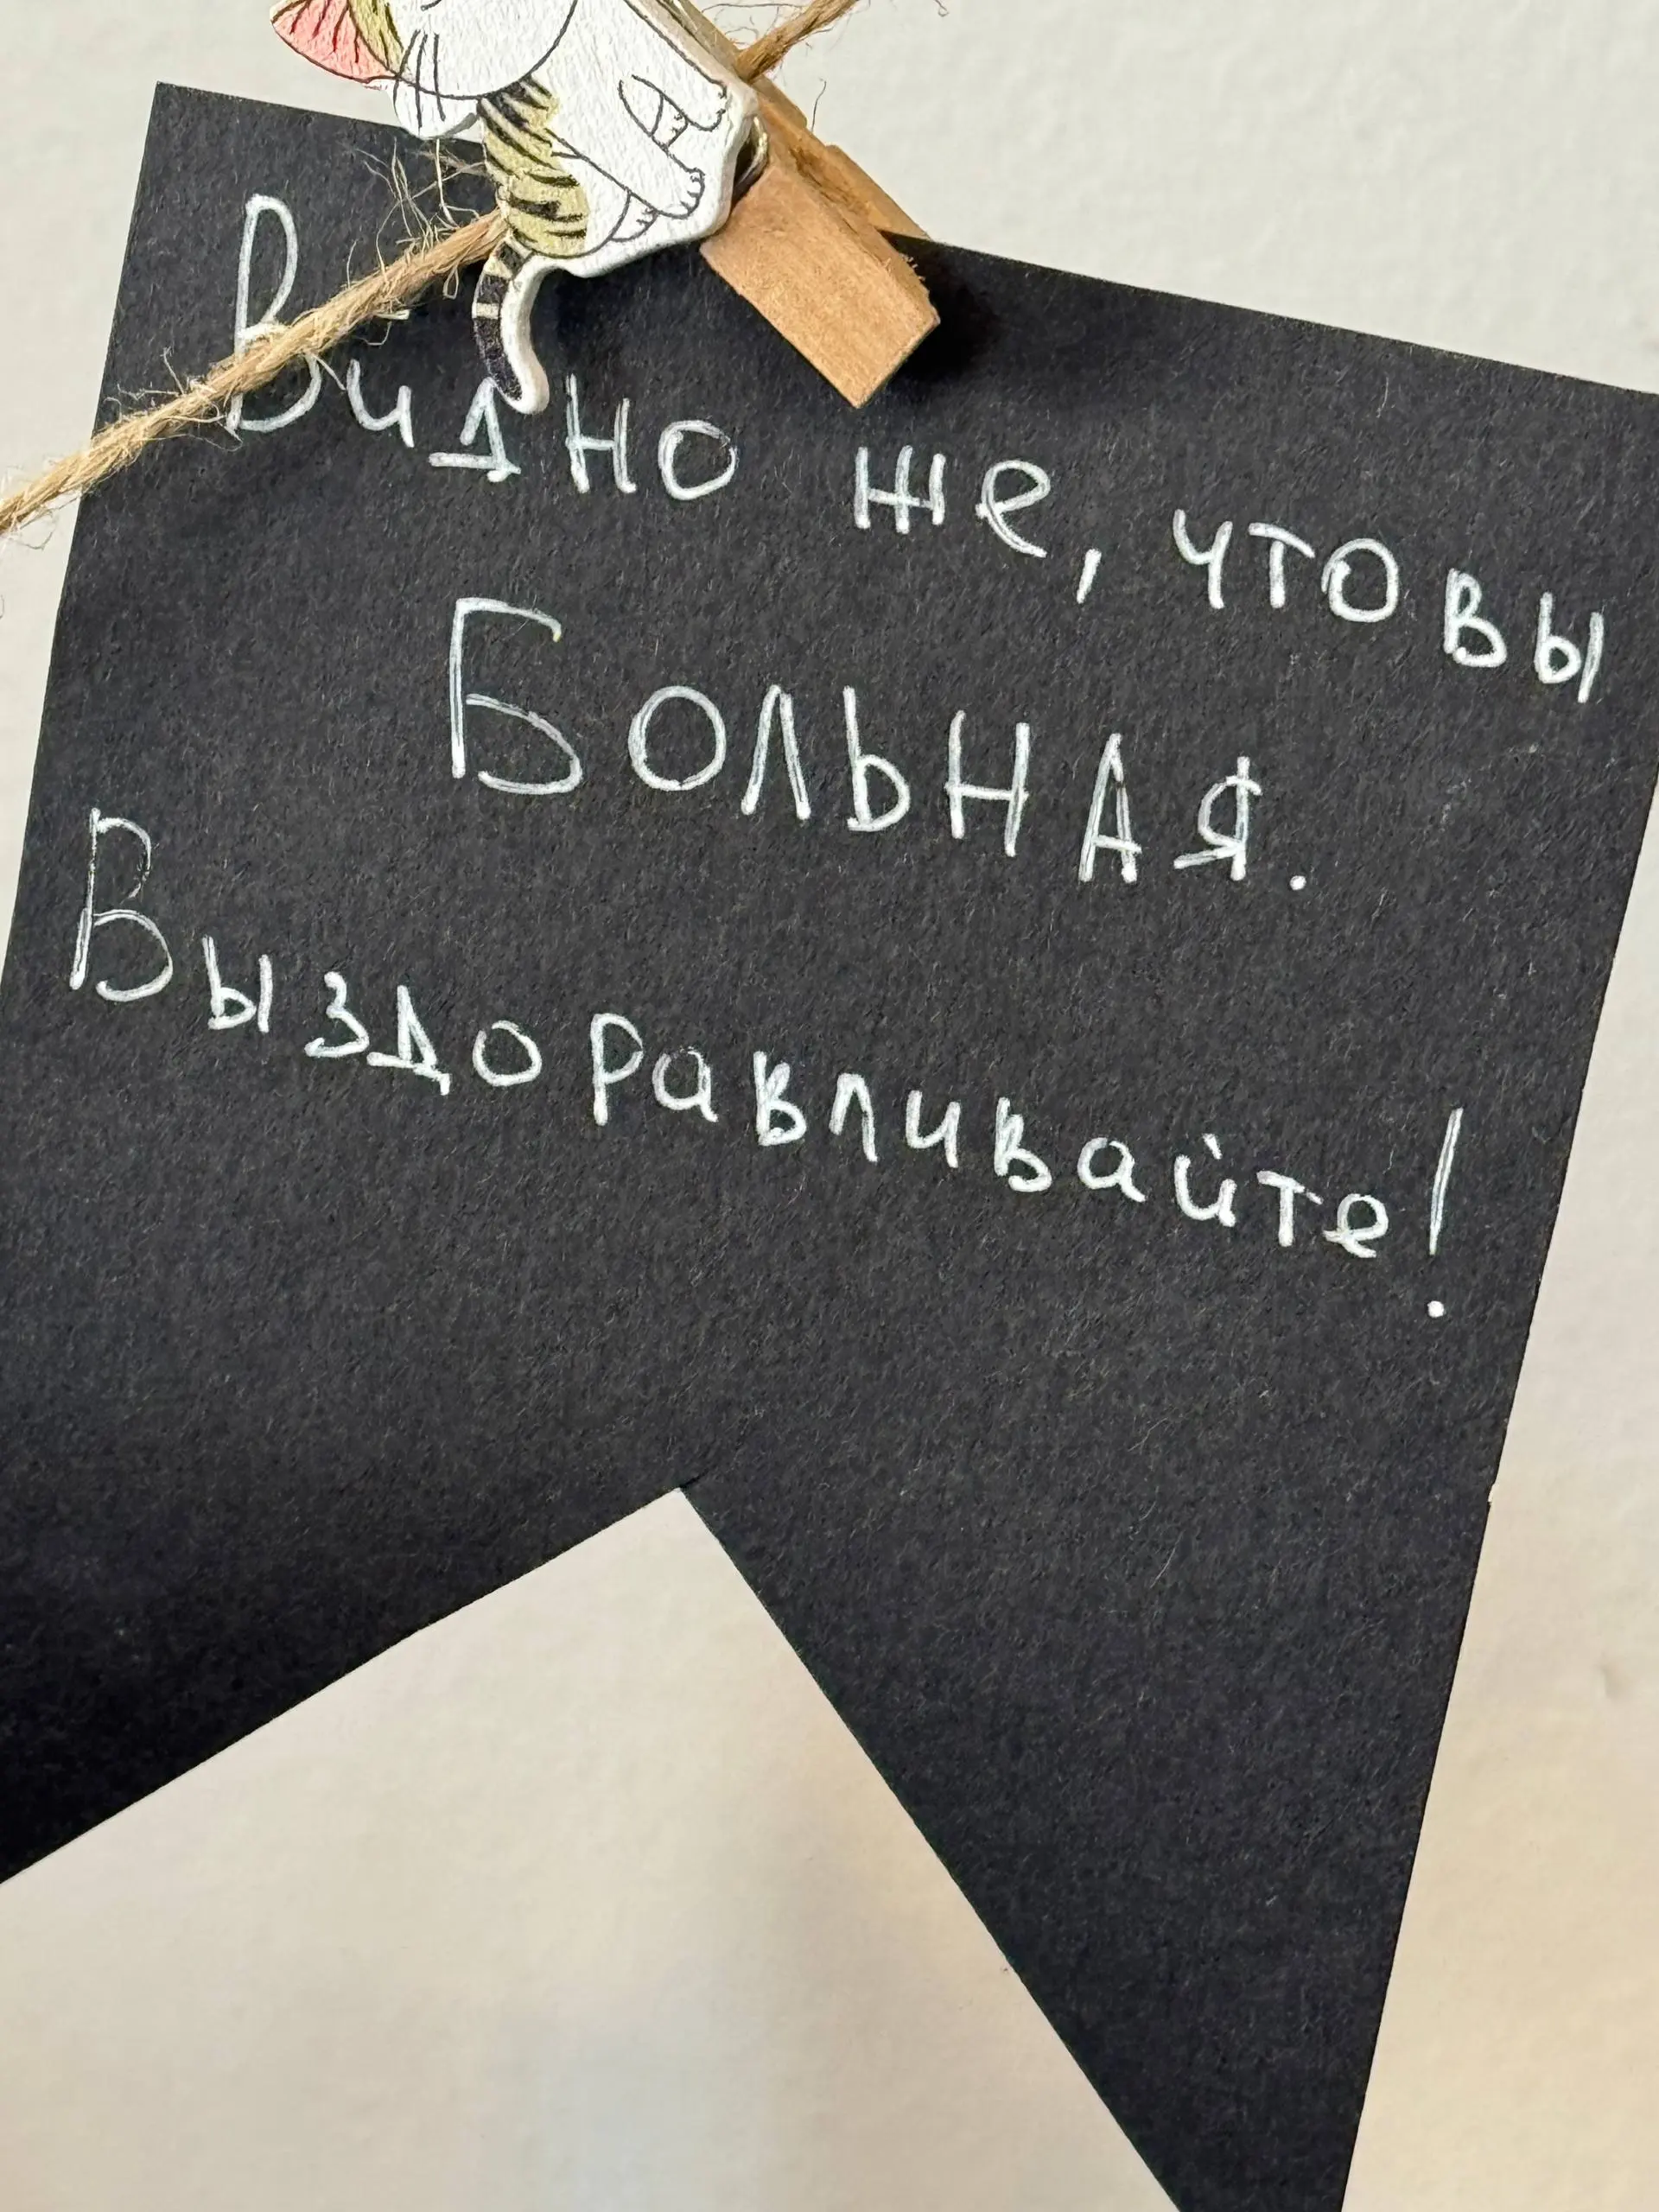 Видно же, что вы
БОЛЬНАЯ.
Выздоравливайте!